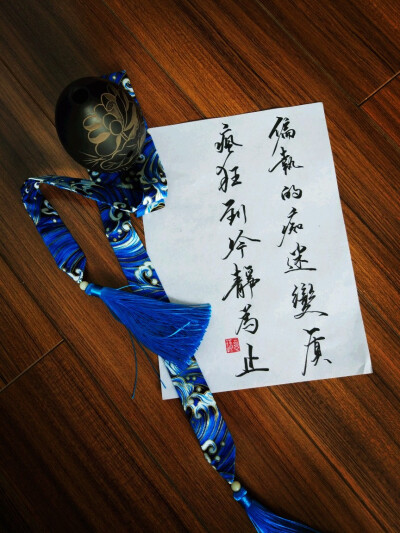 偏執的痴迷變质
瘋狂到冷靜為止